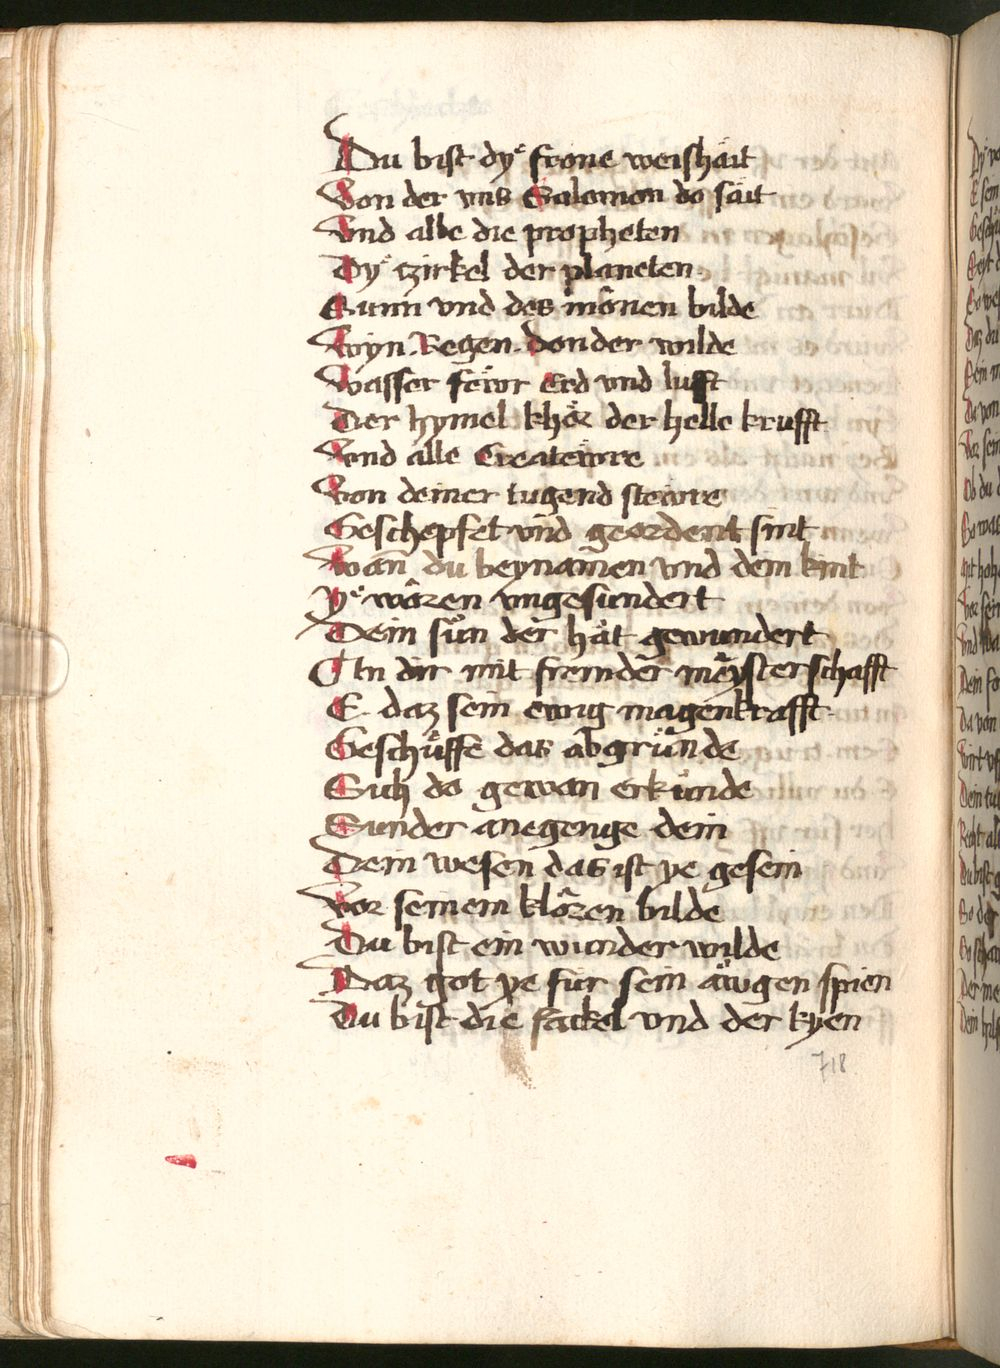 Du bist dyͤ frone weishait
Von der vns Salomon do sait
Vnd alle die propheten
Dyͤ tzirkel der planeten
Sunn vnd des mônen bilde
Wyn. Regen. donder wilde
Wasser feẅr Erd vnd lufft
Der hymel khör der helle krufft
Vnd alle Createẅre
Von deiner tugend steẅre
Geschepfet vnd geordent sint
Wann du beynamen vnd dein kint
Yͤ wâren vngesundert
Dein sün der hät gewundert
In dir mit fremder meysterschafft
E. daz sein ewig magenkrafft.
Geschüffe das abgründe
Sich do gewan erkünde
Sunder anegenge dein
Dein wesen das ist ye gesein
Vor seinem klâren bilde
Du bist ein wunder wilde
Daz got ye für sein äwgen spien
Du bist die fackel vnd der kyen
718